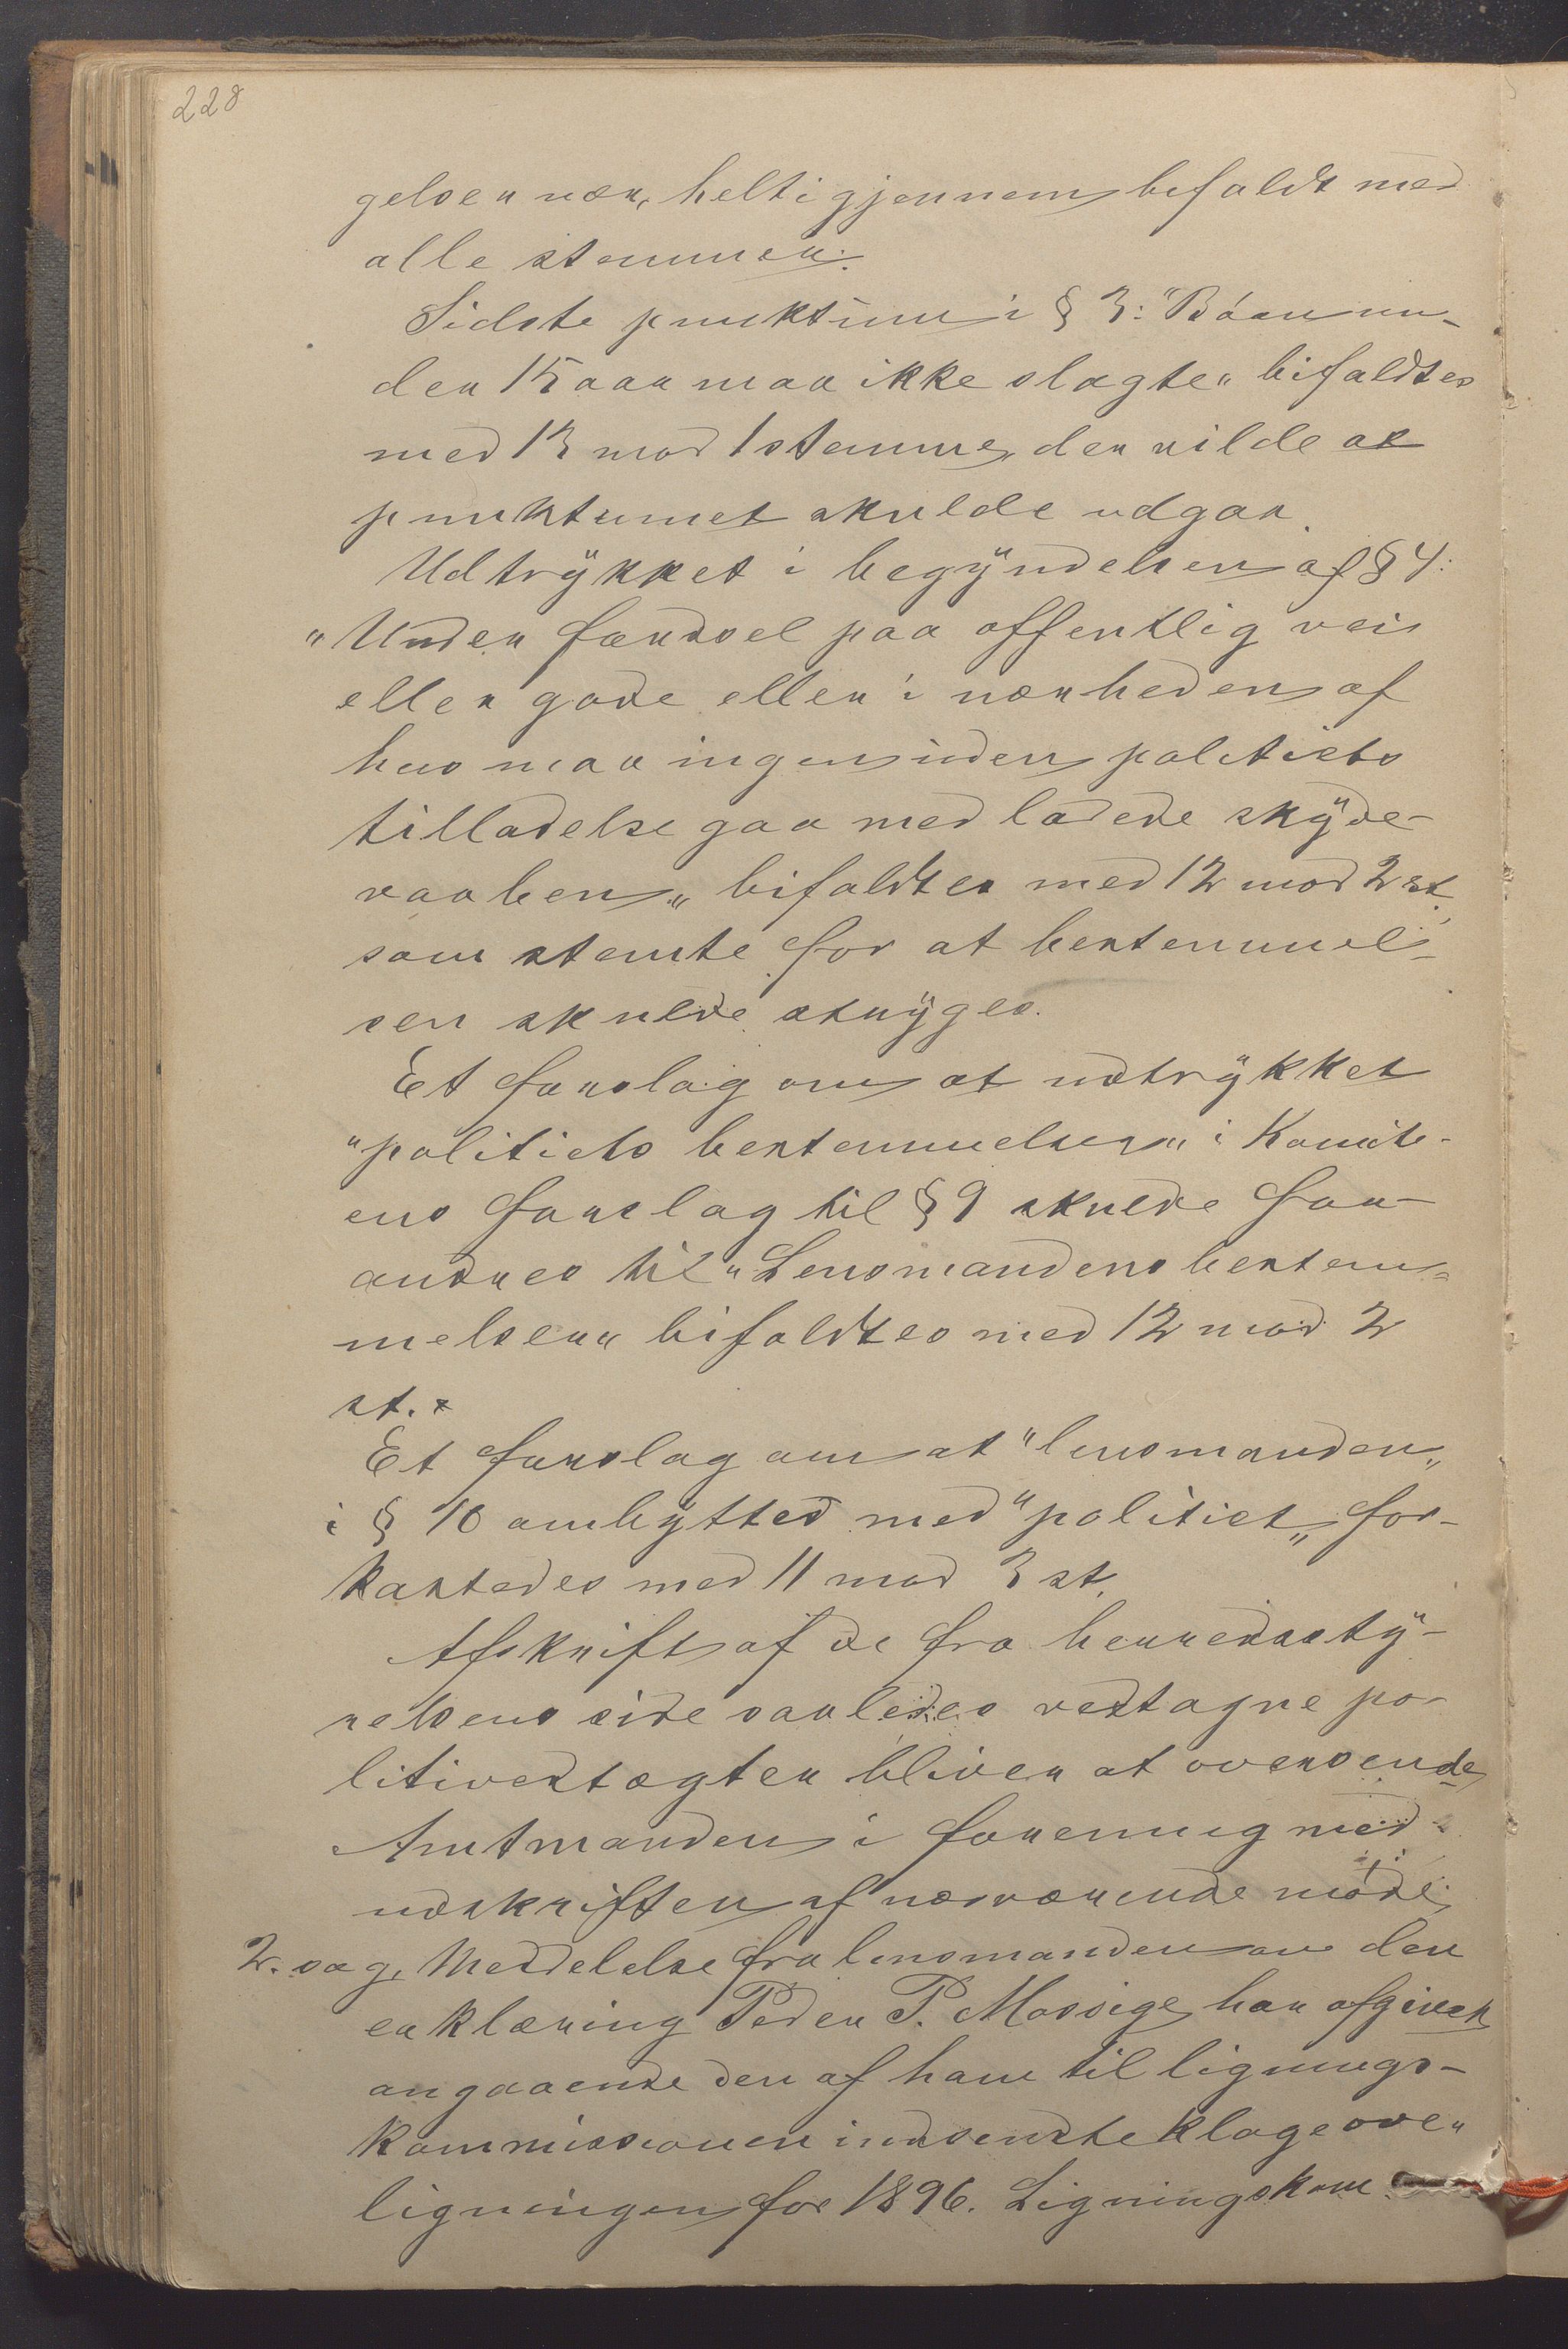 228
gelsen nær, helt igjennem bifaldt med
alle stemmer.
Sidste punktum i § 3: "Børn un-
der 15 aar maa ikke slagte" bifaldtes
med 13 mod 1 stemme, der vilde at
punktumet skulde udgaa.
Udtrykket i begyndelsen af § 4:
"Under færdsel paa offentlig vei
eller gade eller i nærheden af
hus maa ingen uden politiets
tilladelse gaa med ladede skyde-
vaaben" bifaldtes med 12 mod 2 st.,
som stemte for at bestemmel-
sen skulde strykes.
Et forslag om at udtrykket
"politiets bestemmelser" i Komite-
ens forslag til § 9 skulde for-
andres til "Lensmandens bestem-
melser" bifaldtes med 12 mod 2
st.
Et forslag om at "lensmanden"
i § 10 ombyttes med "politiet" for-
kastedes med 11 mod 3 st.
Afskrift af de fra herredssty-
relsens side saaledes vedtagne po-
litivedtægter bliver at oversende
Amtmanden i forening med
udskriften af nærværende møde.
2. sag. Meddelelse fra lensmanden om den
erklæring Peder P. Mossige har afgivet
angaaende den af ham til lignings-
kommissionen indsendte klage over
ligningen for 1896. Ligningskom